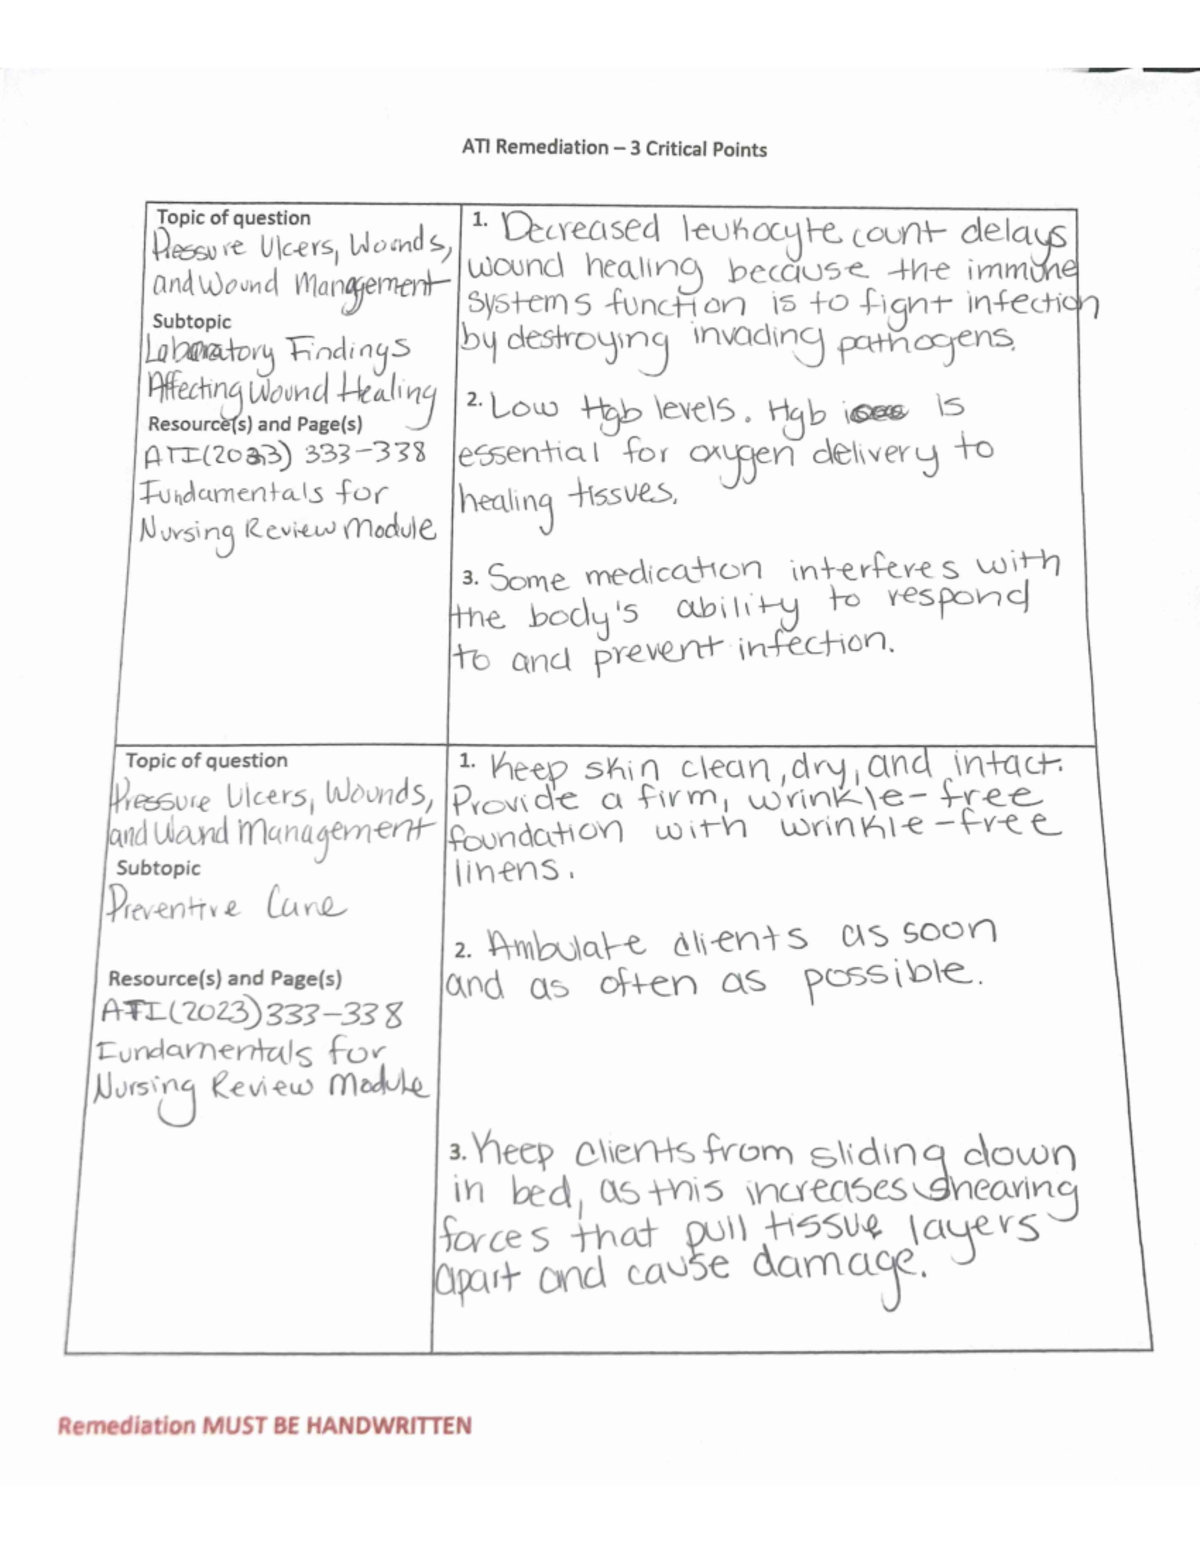 ATI Remediation – 3 Critical Points
Topic of question
Pressure Ulcers, Wounds,
and Wound Management
Subtopic
Laboratory Findings
Affecting Wound Healing
Resource(s) and Page(s)
ATI (2023) 333-338
Fundamentals for
Nursing Review Module
1. Decreased leukocyte count delays
wound healing because the immune
systems function is to fight infection
by destroying invading pathogens.
2. Low Hgb levels. Hgb is
essential for oxygen delivery to
healing tissues.
3. Some medication interferes with
the body's ability to respond
to and prevent infection.
Topic of question
Pressure Ulcers, Wounds,
and Wound Management
Subtopic
Preventive Care
Resource(s) and Page(s)
ATI (2023) 333-338
Fundamentals for
Nursing Review Module
1. Keep skin clean, dry, and intact.
Provide a firm, wrinkle-free
foundation with wrinkle-free
linens.
2. Ambulate clients as soon
and as often as possible.
3. Keep clients from sliding down
in bed, as this increases shearing
forces that pull tissue layers
apart and cause damage.
Remediation MUST BE HANDWRITTEN